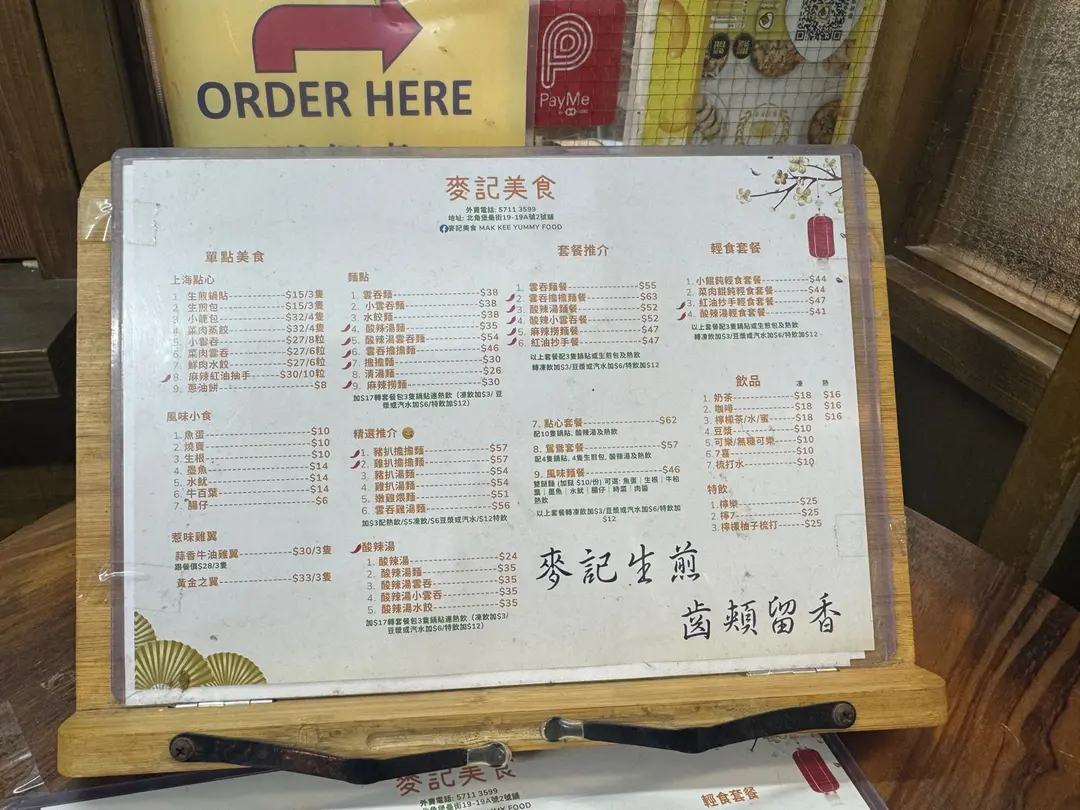 ORDER HERE
PayMe
麥記美食
外賣電話: 5711 3599
地址: 北角堡壘街19-19A號2號舖
麥記美食 MAK KEE YUMMY FOOD
單點美食
上海點心
1. 生煎鍋貼 $15/3隻
2. 生煎包 $15/3隻
3. 小籠包 $32/4隻
4. 菜肉蒸餃 $32/4隻
5. 小雲吞 $27/8粒
6. 菜肉雲吞 $27/6粒
7. 鮮肉水餃 $27/6粒
8. 麻辣紅油抽手 $30/10粒
9. 蔥油餅 $8
風味小食
1. 魚蛋 $10
2. 燒賣 $10
3. 生根 $10
4. 墨魚 $14
5. 水魷 $14
6. 牛百葉 $14
7. 腸仔 $6
惹味雞翼
蒜香牛油雞翼 $30/3隻
跟餐價$28/3隻
黃金之翼 $33/3隻
麵點
1. 雲吞麵 $38
2. 小雲吞麵 $38
3. 水餃麵 $38
4. 酸辣湯麵 $35
5. 酸辣湯雲吞麵 $54
6. 雲吞擔擔麵 $46
7. 擔擔麵 $30
8. 清湯麵 $26
9. 麻辣撈麵 $30
加$17轉套餐包3隻鍋貼連熱飲（凍飲加$3/ 豆
漿或汽水加$6/特飲加$12）
精選推介
1. 豬扒擔擔麵 $57
2. 雞扒擔擔麵 $57
3. 豬扒湯麵 $54
4. 雞扒湯麵 $54
5. 嫩雞煨麵 $51
6. 雲吞雞湯麵 $56
加$3配熱飲/$5凍飲/$6豆漿或汽水/$12特飲
酸辣湯
1. 酸辣湯 $24
2. 酸辣湯麵 $35
3. 酸辣湯雲吞 $35
4. 酸辣湯小雲吞 $35
5. 酸辣湯水餃 $35
加$17轉套餐包3隻鍋貼連熱飲（凍飲加$3/
豆漿或汽水加$6/特飲加$12）
套餐推介
1. 雲吞麵餐 $55
2. 雲吞擔擔麵餐 $63
3. 酸辣湯麵餐 $52
4. 酸辣小雲吞餐 $52
5. 麻辣撈麵餐 $47
6. 紅油抄手餐 $47
以上套餐配3隻鍋貼或生煎包及熱飲
轉凍飲加$3/豆漿或汽水加$6/特飲加$12
7. 點心套餐 $62
配10隻鍋貼, 酸辣湯及熱飲
8. 鴛鴦套餐 $57
配4隻鍋貼, 4隻生煎包, 酸辣湯及熱飲
9. 風味麵餐 $46
雙餸麵 (加餸 $10/份) 可選: 魚蛋｜生根｜牛柏
葉｜墨魚｜水魷｜腸仔｜時菜｜肉醬
熱飲
以上套餐轉凍飲加$3/豆漿或汽水加$6/特飲加
$12
輕食套餐
1. 小餛飩輕食套餐 $44
2. 菜肉餛飩輕食套餐 $44
3. 紅油抄手輕食套餐 $47
4. 酸辣湯輕食套餐 $41
以上套餐配3隻鍋貼或生煎包及熱飲
轉凍飲加$3/豆漿或汽水加$6/特飲加$12
飲品 凍 熱
1. 奶茶 $18 $16
2. 咖啡 $18 $16
3. 檸檬茶/水/蜜 $18 $16
4. 豆漿 $10
5. 可樂/無糖可樂 $10
6. 7喜 $10
7. 梳打水 $10
特飲
1. 檸樂 $25
2. 檸7 $25
3. 檸檬柚子梳打 $25
麥記生煎
齒頰留香
麥記美食
外賣電話: 5711 3599
輕食套餐